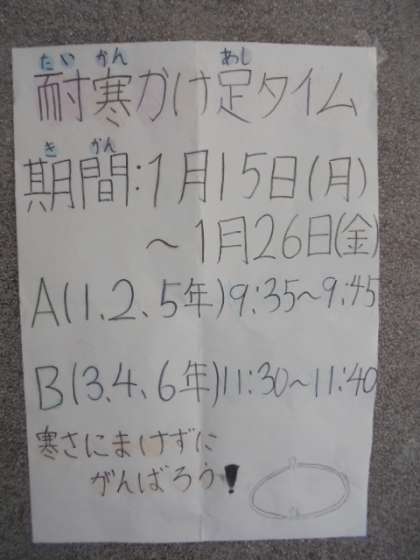 たいかん あし
耐寒かけ足タイム
きかん
期間:1月15日(月)
～1月26日(金)
A(1、2、5年)9:35～9:45
B(3、4、6年)11:30～11:40
寒さにまけずに
がんばろう!